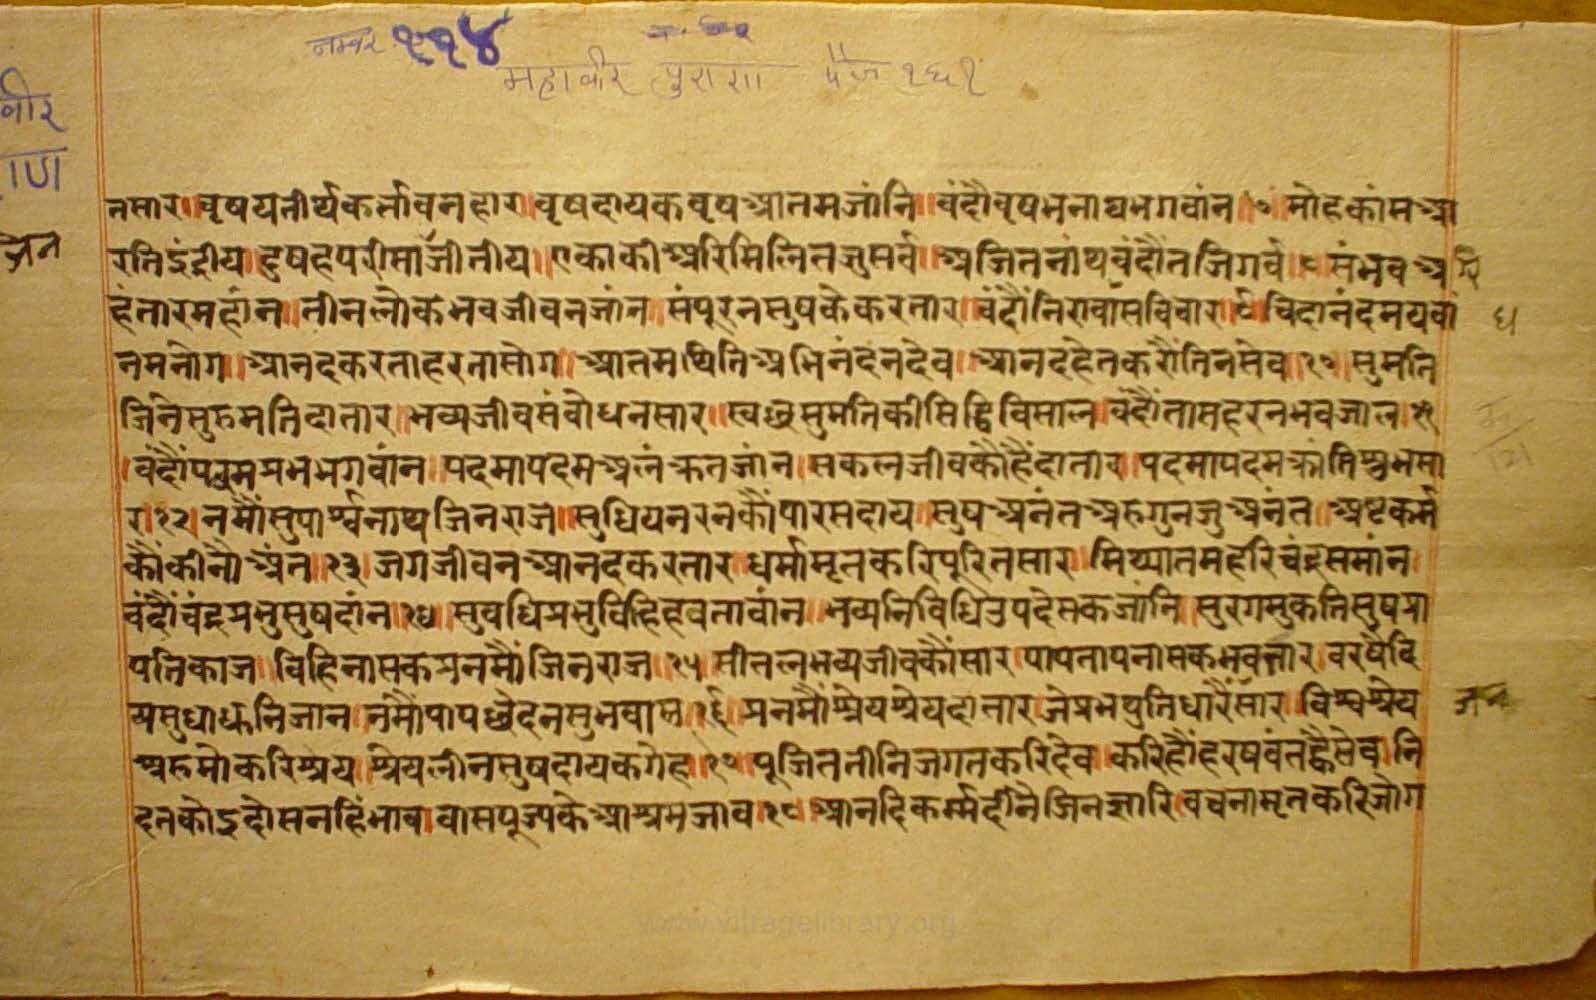 नम्बर ११४
महावीर पुराण पेज १६१
वीर
ाण
नसार॥वृषयतीर्थकर्त्तावनहार।वृषदायकवृषआतमजांनि॥वंदौवृषभनाथभगवांन॥७॥मोहकांमआ
रतिइंद्रीय।दुषहपरीसाजीतीय॥एकाकीअरिमिलितजुसर्व॥अजितनांथवंदौंतजिगर्व॥८॥संभवअ
हंतारमहांन॥तीनलोकभवजीवनजांन॥संपूरनसुषकेकरतार॥वंदौंनिरावांसविवार॥९॥चिदानंदमयवां
नमनोग॥आनदकरताहरतासोग॥आतमथितिअभिनंदनदेव॥आनदहेतकरौंतिनसेव॥१०॥सुमति
जिनेसुरुमतिदातार॥भव्यजीवसंबोधनसार॥स्वछसुमतिकीसिद्धिविसाल।वंदौंतासहरनभवजाल।११
।वंदौंपदमप्रभभगवांन॥पदमापदमअलंक्रतजांन॥सकलजीवकौहैंदातार।पदमापदमक्रांतिसुभसा
र।१२।नमौंसुपार्श्वनाथजिनराज॥सुधियनरनकौंपारसदाय॥सुषअनंतअरुगुनजुअनंत॥अष्टकर्म
कौंकीनौअंत॥१३।जगजीवनआनदकरतार॥धर्मामृतकरिपूरितसार॥मिथ्यातमहरिचंद्रसमांन।
वंदौंचंद्रप्रभुसुषदांन॥१४॥सुवधिप्रभुविहिहवतावांन॥भव्यनिविधिउपदेसकजांनि॥सुरगमुकतिसुषप्रा
पतिकाज॥विहिनासकप्रनमौंजिनराज॥१५॥सीतलभव्यजीवकौंसार।पापतापनासकभवतार।वरषैदि
व्यसुधाध्वनिजान।नमौंपापछेदनसुभवाम॥१६॥प्रनमौंश्रेयश्रेयदातार।जेप्रभपुतिधारैंसार।विश्वश्रेय
अरुमोकरिश्रय।श्रेयलीनसुषदायकगेह॥१७॥पूजिततीनिजगतकरिदेव।करिहौंहरषवंतह्वैसेव।नि
हतकोइदोसनहिंभाव।वासपूज्यकेआश्रमजाव॥१८॥आनदिकर्म्मदीनैजिनजारि।वचनामृतकरिजोग